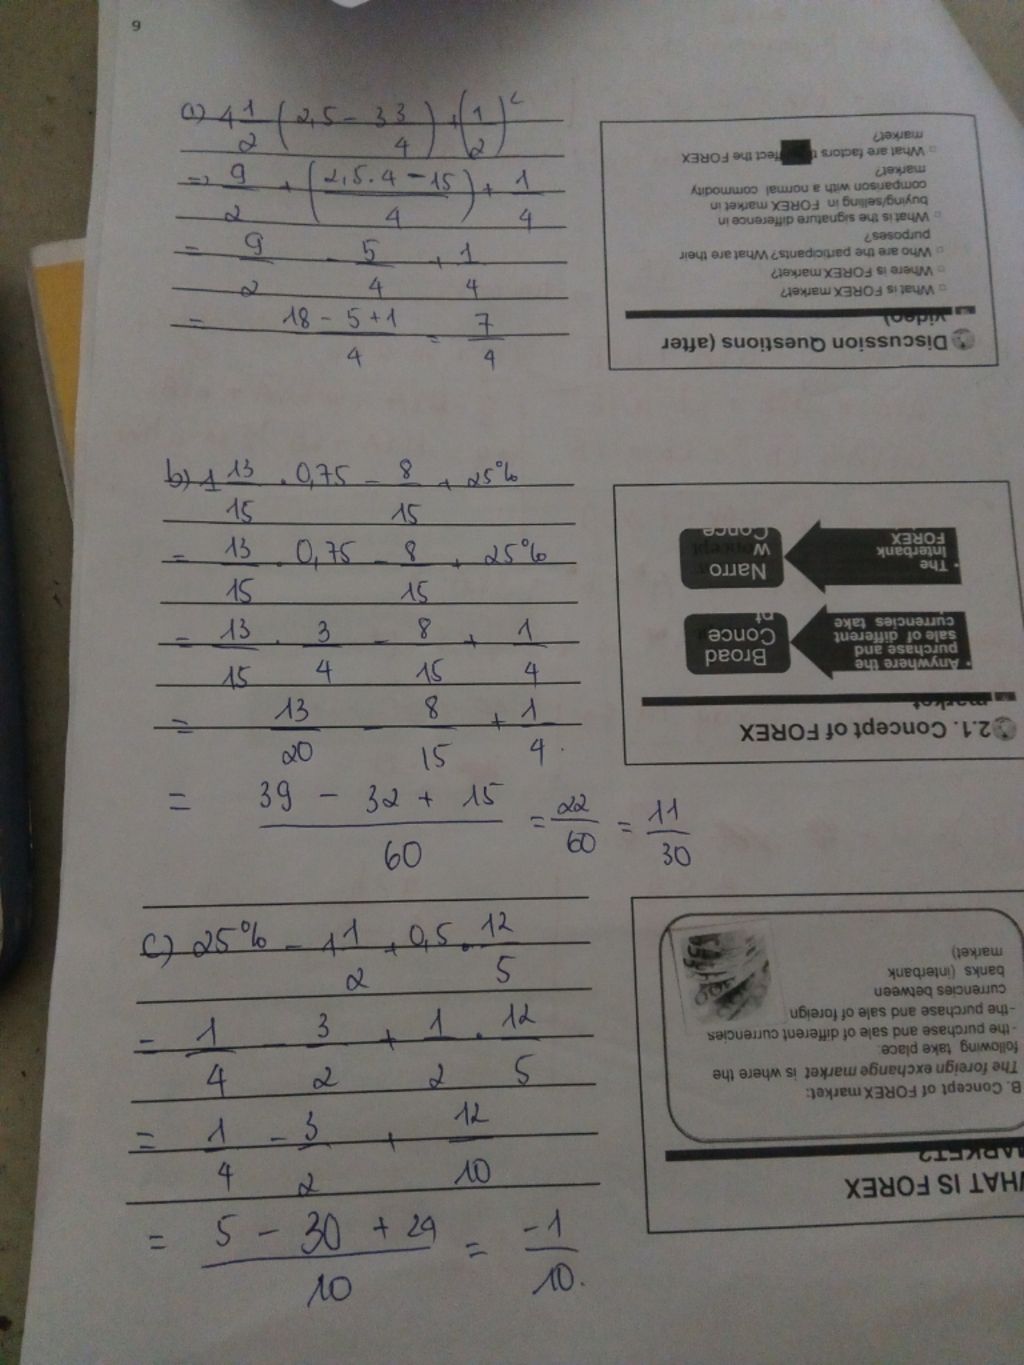 9
a) 4 1/2 (2,5 - 3 3/4) + (1/2)²
=> 9/2 + (2,5.4 - 15/4) + 1/4
= 9/2 - 5/4 + 1/4
= 18 - 5 + 1/4 = 7/4
b) 1 13/15 . 0,75 - 8/15 + 25%
= 13/15 . 0,75 - 8/15 + 25%
= 13/15 . 3/4 - 8/15 + 1/4
= 13/20 - 8/15 + 1/4.
= 39 - 32 + 15/60 = 22/60 = 11/30
c) 25% - 1 1/2 + 0,5 . 12/5
= 1/4 - 3/2 + 1/2 . 12/5
= 1/4 - 3/2 + 12/10
= 5 - 30 + 24/10 = -1/10.
HAT IS FOREX
ARKET?
B. Concept of FOREX market:
The foreign exchange market is where the
following take place:
-the purchase and sale of different currencies
-the purchase and sale of foreign
currencies between
banks (interbank
market)
2.1. Concept of FOREX
market
• Anywhere the
purchase and
sale of different
currencies take
Broad
Conce
pt
• The
Interbank
FOREX
Narro
w
Conce
Discussion Questions (after
video)
What is FOREX market?
Where is FOREX market?
Who are the participants? What are their
purposes?
What is the signature difference in
buying/selling in FOREX market in
comparison with a normal commodity
market?
What are factors fect the FOREX
market?